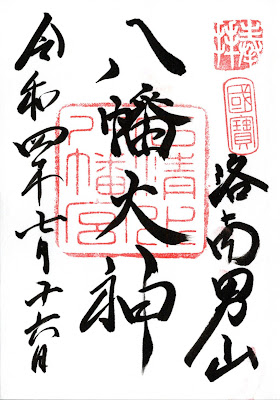 奉拝
國寶
洛南男山
八幡大神
石清水
八幡宮
令和四年七月十六日